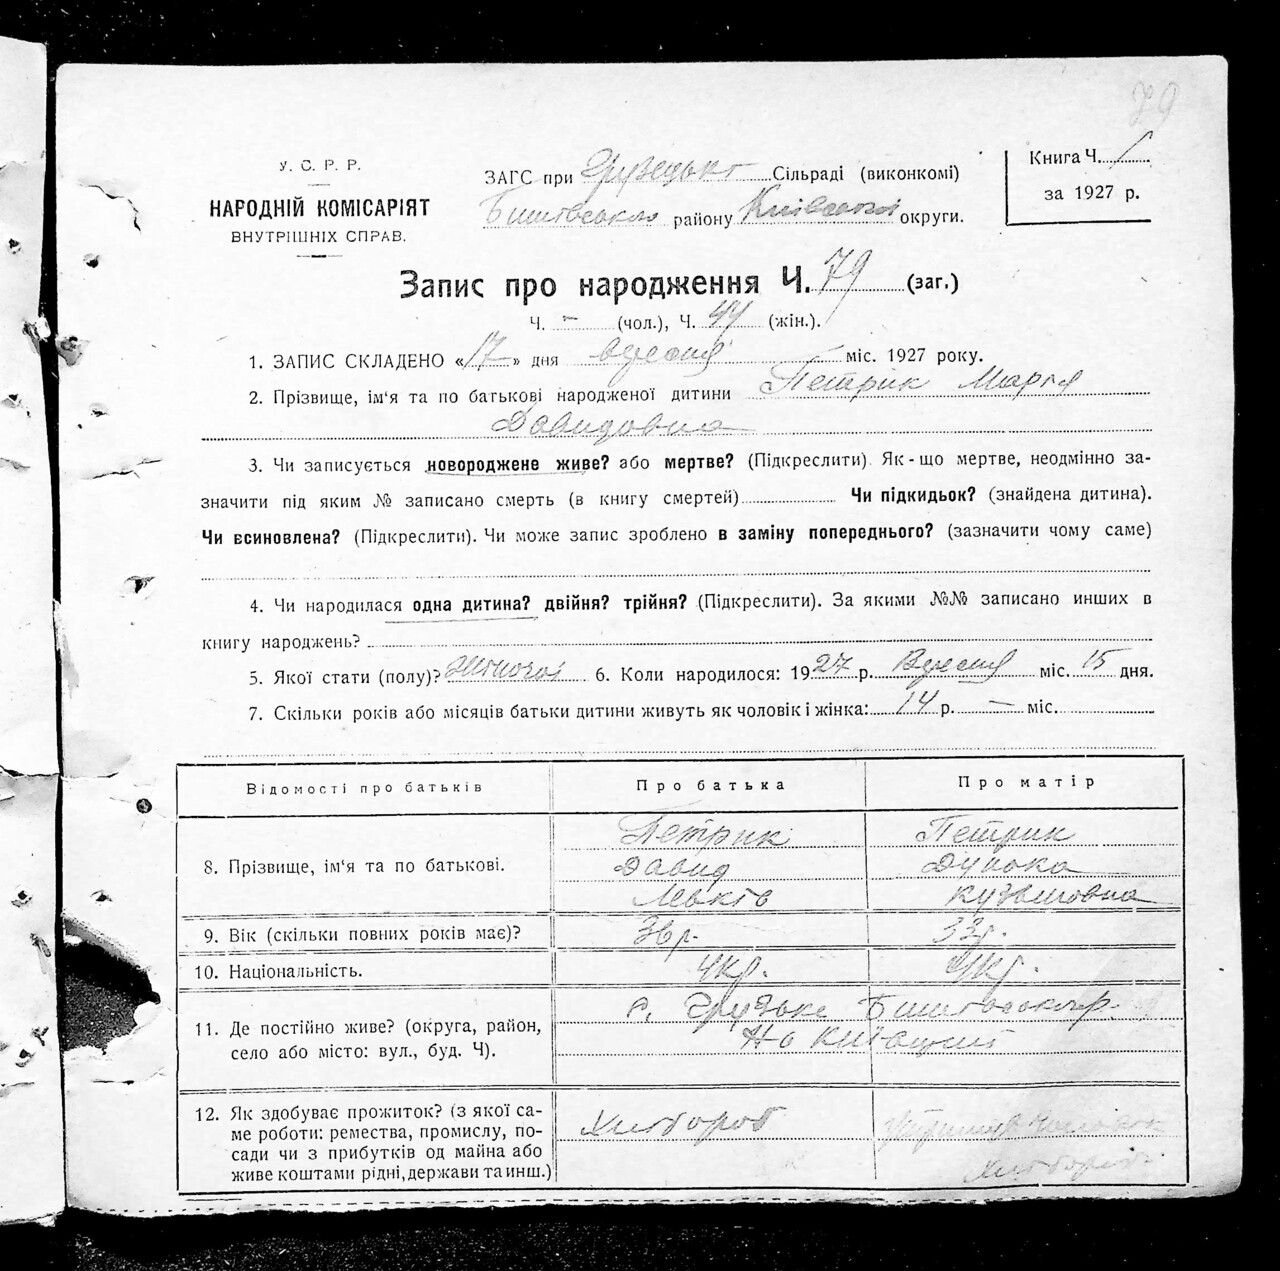 79
У. С. Р. Р.
НАРОДНІЙ КОМІСАРІЯТ
ВНУТРІШНІХ СПРАВ.
ЗАГС при Грузецькі Сільраді (виконкомі)
Бишівського району Київської округи.
Книга Ч. 1
за 1927 р.
Запис про народження Ч. 79 (заг.)
Ч. - (чол.), Ч. 44 (жін.).
1. ЗАПИС СКЛАДЕНО «17» дня вересня міс. 1927 року.
2. Прізвище, ім'я та по батькові народженої дитини Петрик Марія
Давидовна
3. Чи записується новороджене живе? або мертве? (Підкреслити) Як-що мертве, неодмінно за-
значити під яким № записано смерть (в книгу смертей) Чи підкидьок? (знайдена дитина).
Чи всиновлена? (Підкреслити). Чи може запис зроблено в заміну попереднього? (зазначити чому саме)
4. Чи народилася одна дитина? двійня? трійня? (Підкреслити). За якими №№ записано инших в
книгу народжень?
5. Якої стати (полу)? жіночої 6. Коли народилося: 1927 р. Вересня міс. 15 дня.
7. Скільки років або місяців батьки дитини живуть як чоловік і жінка: 14 р. — міс.
Відомості про батьків Про батька Про матір
8. Прізвище, ім'я та по батькові.
Петрик Петрик
Давид
Кузьмовна
9. Вік (скільки повних років має)? 36 р. 33 р.
10. Національність. Укр. Укр.
11. Де постійно живе? (округа, район,
село або місто: вул., буд. Ч).
с. Грузьке Бишівськ. р.
12. Як здобуває прожиток? (з якої са-
ме роботи: ремества, промислу, по-
сади чи з прибутків од майна або
живе коштами рідні, держави та инш.)
Хлібороб